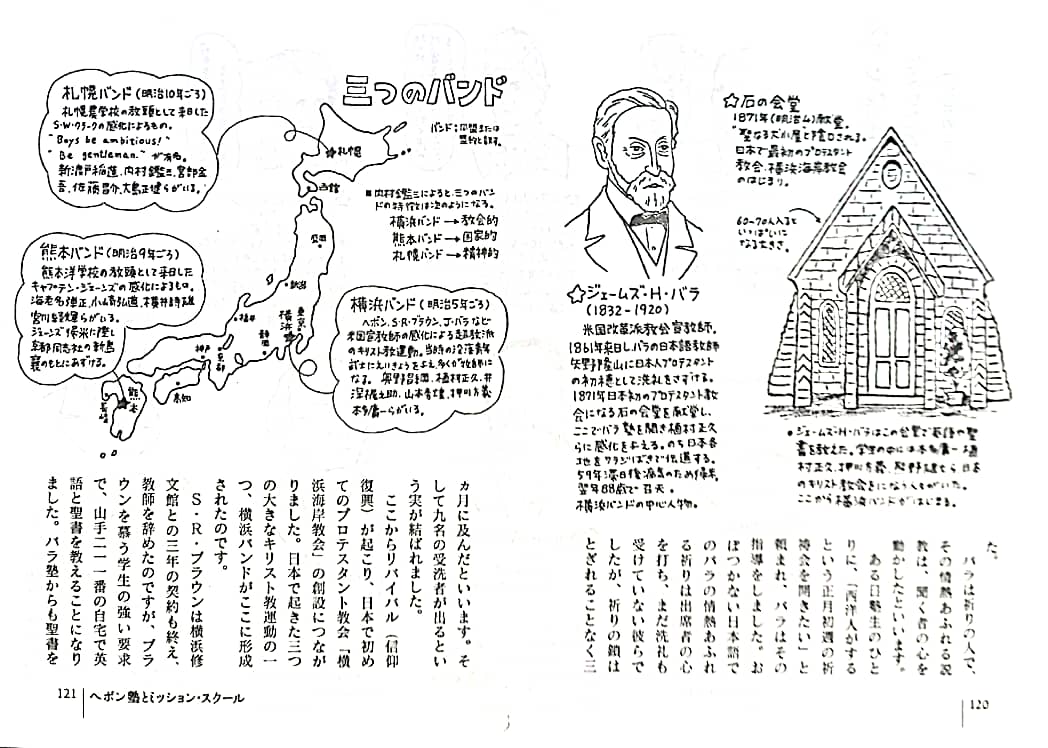 ☆石の会堂
1871年(明治4)献堂。
"聖なる犬小屋"と陰口される。
日本で最初のプロテスタント
教会、横浜海岸教会
のはじまり。
60〜70人入ると
いっぱいに
なる大きさ。
☆ジェームズ・H・バラ
(1832-1920)
米国改革派教会宣教師。
1861年来日し、バラの日本語教師
矢野隆山に日本人プロテスタント
の初穂として洗礼をさずける。
1871年日本初のプロテスタント教
会になる石の会堂を献堂し、
ここでバラ塾を開き植村正久
らに感化を与える。のち日本各
地をワラジばきで伝道する。
翌年88歳で召天。
横浜バンドの中心人物。
●ジェームズ・H・バラはこの会堂で英語や聖
書を教えた。学生の中には本多庸一、植
村正久、押川方義、
ここから横浜バンドがはじまる。
た。
バラは祈りの人で、
その情熱あふれる説
教は、聞く者の心を
動かしたといいます。
ある日塾生のひと
りに、「西洋人がする
という正月初週の祈
禱会を開きたい」と
頼まれ、バラはその
指導をしました。お
ぼつかない日本語で
のバラの情熱あふれ
る祈りは出席者の心
を打ち、まだ洗礼も
受けていない彼らで
したが、祈りの鎖は
とぎれることなく三
120
三つのバンド
バンド:同盟または
盟約と訳す。
札幌バンド(明治10年ごろ)
札幌農学校の教頭として来日した
S・W・クラークの感化によるもの。
"Boys be ambitious!"
"Be gentleman."が有名。
新渡戸稲造、内村鑑三、宮部金
吾、佐藤昌介、大島正健らがいる。
■内村鑑三によると、三つのバン
ドの特徴は次のようになる。
横浜バンド→教会的
熊本バンド→国家的
札幌バンド→精神的
熊本バンド(明治9年ごろ)
熊本洋学校の教頭として来日した
キャプテン・ジェーンズの感化によるもの。
海老名弾正、小崎弘道、横井時雄
宮川経輝らがいる。
ジェーンズ帰米に際し
京都同志社の新島
襄のもとにあずける。
横浜バンド(明治5年ごろ)
ヘボン、S・R・ブラウン、J・バラなど
米国宣教師の感化による超教派
のキリスト教運動。当時の没落青年
武士にえいきょうを与え、多くが牧師に
なる。奥野昌綱、植村正久、井
深梶之助、山本秀煌、押川方義
本多庸一らがいる。
札幌
函館
盛岡
新潟
福井
東京
横浜
静岡
神戸
京都
高知
熊本
長崎
ヵ月に及んだといいます。そ
して九名の受洗者が出るとい
う実が結ばれました。
ここからリバイバル(信仰
復興)が起こり、日本で初め
てのプロテスタント教会「横
浜海岸教会」の創設につなが
りました。日本で起きた三つ
の大きなキリスト教運動の一
つ、横浜バンドがここに形成
されたのです。
S・R・ブラウンは横浜修
文館との三年の契約も終え、
教師を辞めたのですが、ブラ
ウンを慕う学生の強い要求
で、山手二一一番の自宅で英
語と聖書を教えることになり
ました。バラ塾からも聖書を
121 ヘボン塾とミッション・スクール